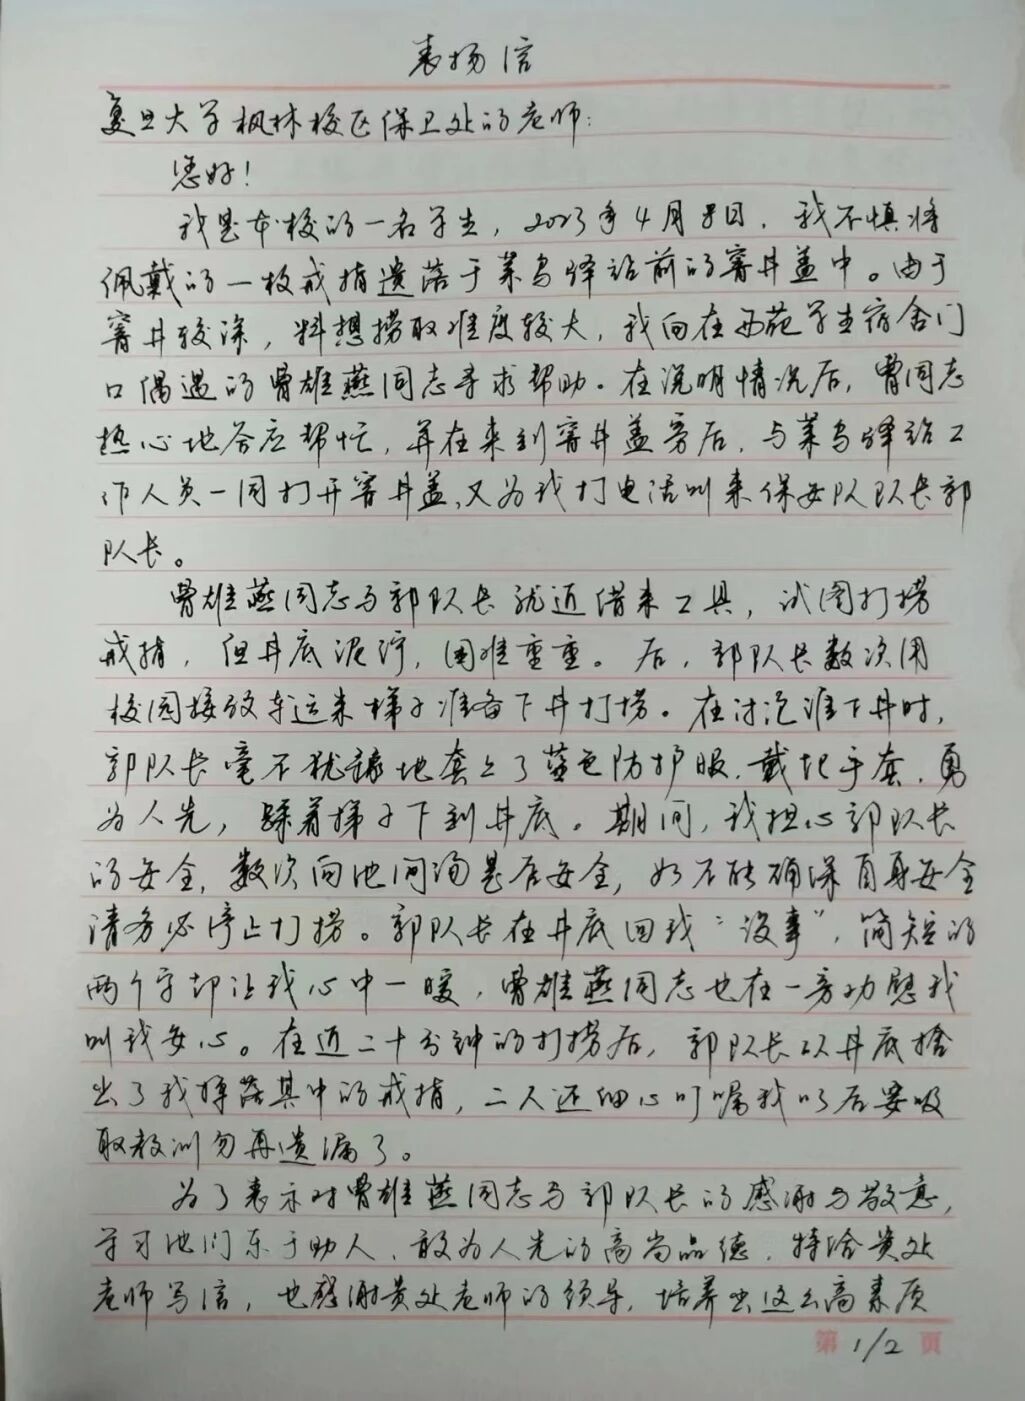 表扬信
复旦大学枫林校区保卫处的老师：
您好！
我是本校的一名学生，2023年4月8日，我不慎将
佩戴的一枚戒指遗落于菜鸟驿站前的窨井盖中。由于
窨井较深，料想捞取难度较大，我向在西苑学生宿舍门
口偶遇的曾雄燕同志寻求帮助。在说明情况后，曾同志
热心地答应帮忙，并在来到窨井盖旁后，与菜鸟驿站工
作人员一同打开窨井盖，又为我打电话叫来保安队队长郭
队长。
曾雄燕同志与郭队长就近借来工具，试图打捞
戒指，但井底泥泞，困难重重。后，郭队长数次用
校园接驳车运来梯子准备下井打捞。在讨论谁下井时，
郭队长毫不犹豫地套上了蓝色防护服，戴起手套，勇
为人先，踩着梯子下到井底。期间，我担心郭队长
的安全，数次向他问询是否安全，如不能确保自身安全
请务必停止打捞。郭队长在井底回我“没事”，简短的
两个字却让我心中一暖，曾雄燕同志也在一旁劝慰我
叫我安心。在近二十分钟的打捞后，郭队长从井底捡
出了我掉落其中的戒指，二人还细心叮嘱我以后要吸
取教训勿再遗漏了。
为了表示对曾雄燕同志与郭队长的感谢与敬意，
学习他们乐于助人、敢为人先的高尚品德，特给贵处
老师写信，也感谢贵处老师的领导，培养出这么高素质
第1/2页